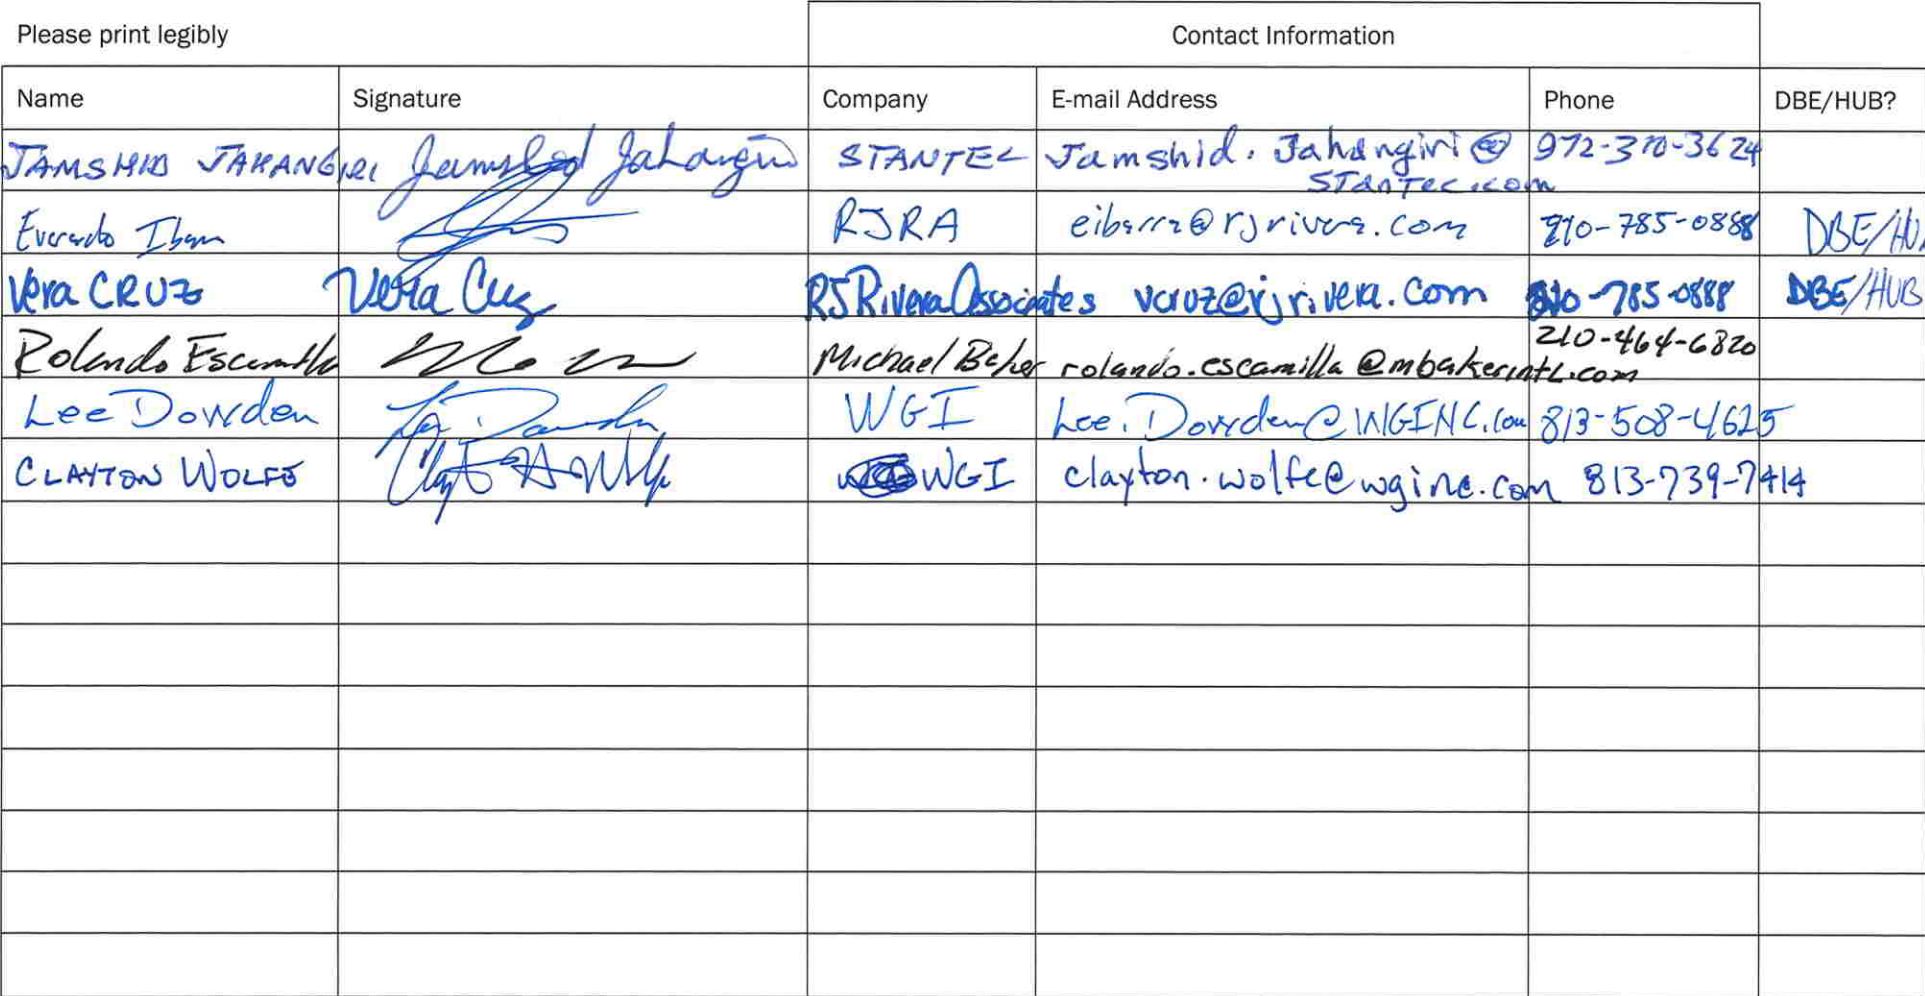 Please print legibly
Contact Information
Name Signature Company E-mail Address Phone DBE/HUB?
JAMSHID JAHANGIRI Jamshid Jahangiri STANTEC Jamshid.Jahangiri@ 972-310-3624
STanTec.com
Everardo RJRA eibarra@rjrivera.com 210-785-0888 DBE/HU
Vera CRUZ Vera Cruz RJRivera Associates vcruz@rjrivera.com 210-785-0888 DBE/HUB
210-464-6820
Rolando Escamilla Michael Baker rolando.escamilla@mbakerintl.com
Lee Dowden WGI Lee.Dowden@WGINC.com 813-508-4625
CLAYTON WOLFE WGI clayton.wolfe@wginc.com 813-739-7414